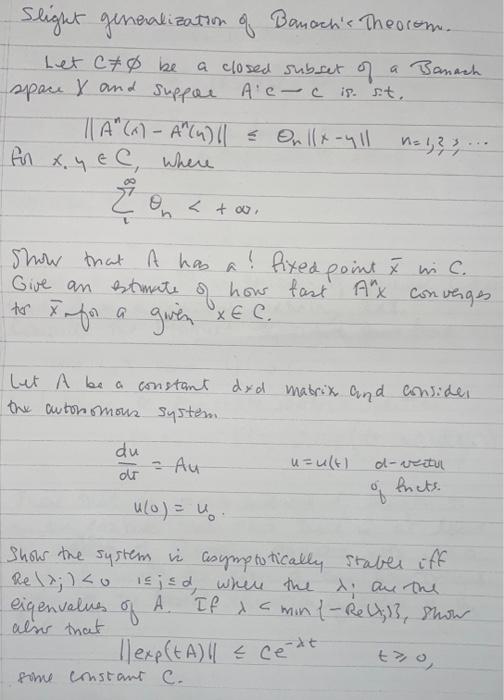 Slight generalization of Banach's Theorem.
Let C ≠ ∅ be a closed subset of a Banach
space X and suppose A: C → C is s.t.
||Aⁿ(x) - Aⁿ(y)|| ≤ θₙ ||x - y||   n = 1, 2, 3, ...
for x, y ∈ C, where
∑₁^∞ θₙ < + ∞.
Show that A has a ! fixed point x̄ in C.
Give an estimate of how fast Aⁿx converges
to x̄ for a given x ∈ C.
Let A be a constant dxd matrix and consider
the autonomous system
du/dt = Au   u = u(t) d-vector
of fncts.
u(0) = u₀.
Show the system is asymptotically stable iff
Re(λⱼ) < 0   1 ≤ j ≤ d, where the λⱼ are the
eigenvalues of A. If λ < min{-Re(λⱼ)}, show
also that
||exp(tA)|| ≤ Ce^{-λt}   t ≥ 0,
some constant C.